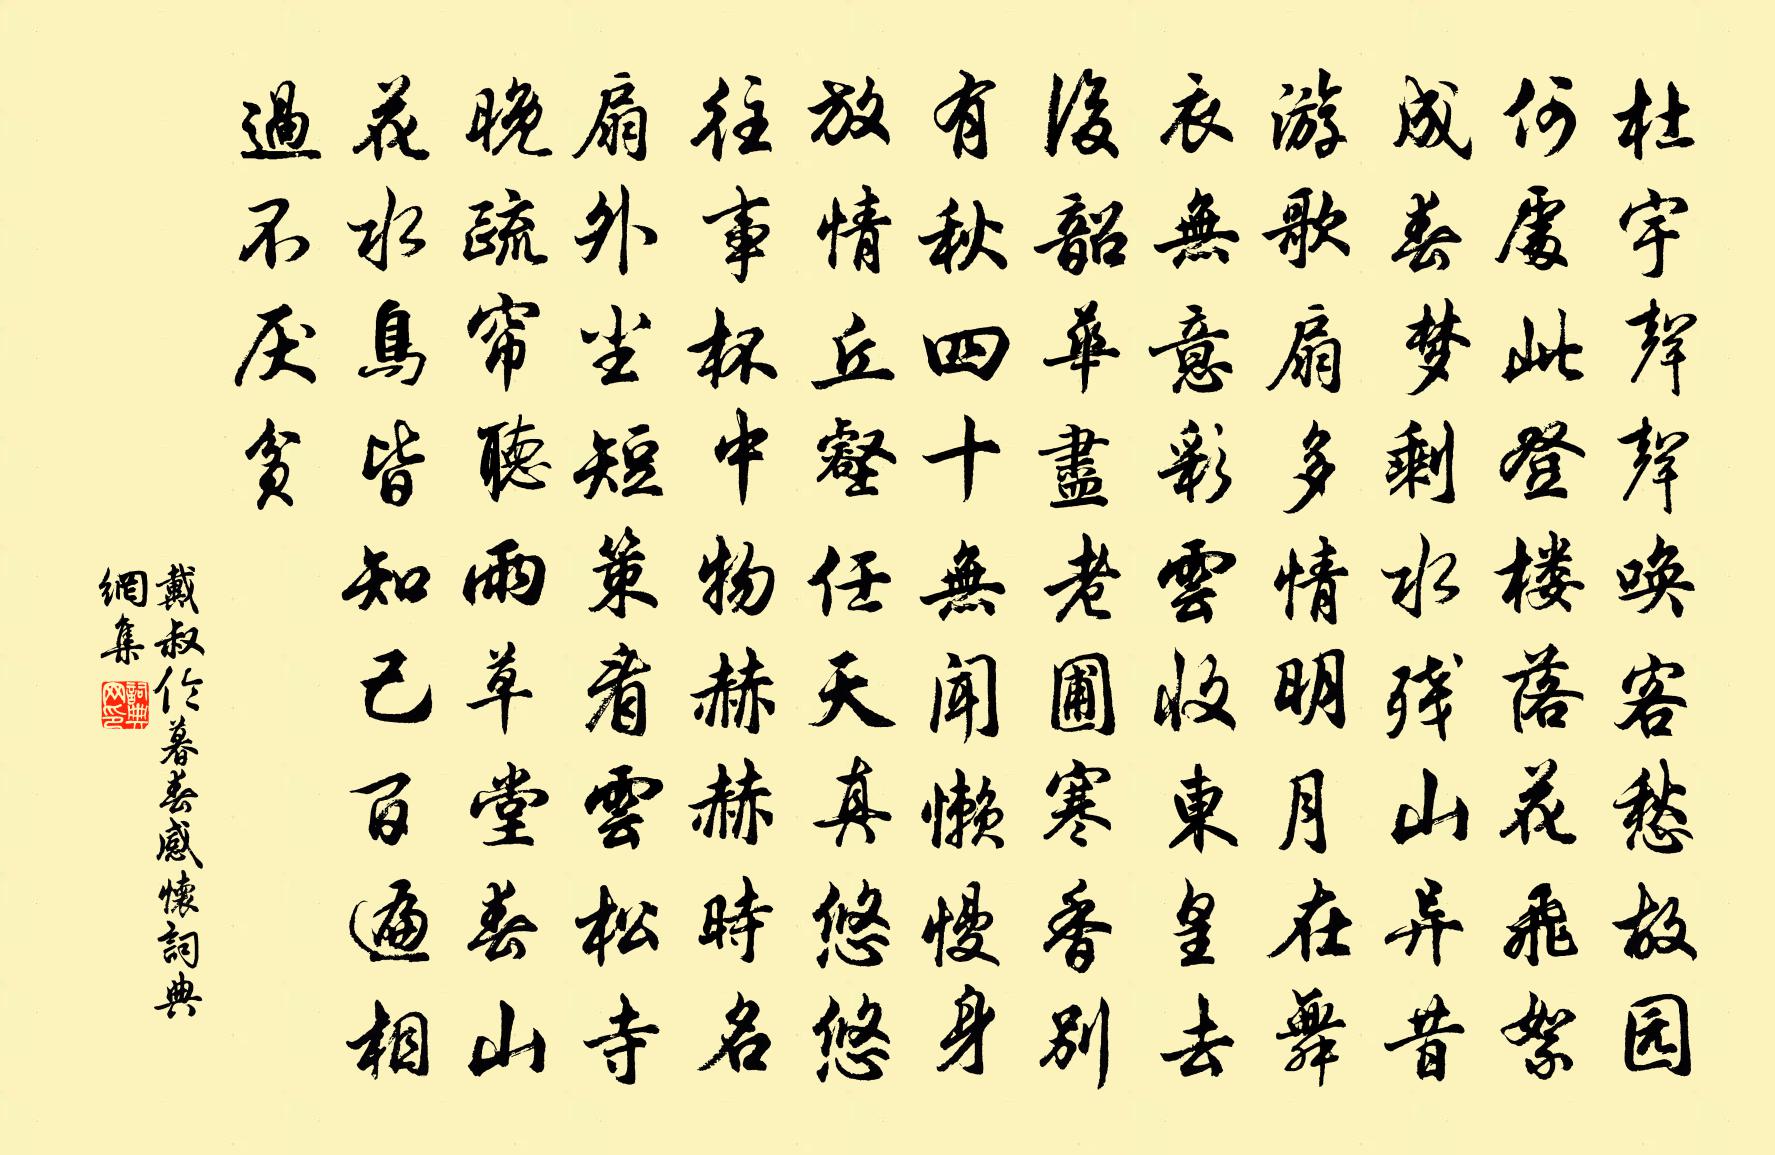 杜宇聲聲唤客愁故园
何處此登楼落花飛絮
成春梦剩水残山异昔
游歌扇多情明月在舞
衣無意彩雲收東皇去
後韶華盡老圃寒香别
有秋四十無聞懒慢身
放情丘壑任天真悠悠
往事杯中物赫赫時名
扇外尘短策看雲松寺
晚疏帘聽雨草堂春山
花水鳥皆知己百遍相
過不厌贫
戴叔伦暮春感懷詞典
網集
詞典网印